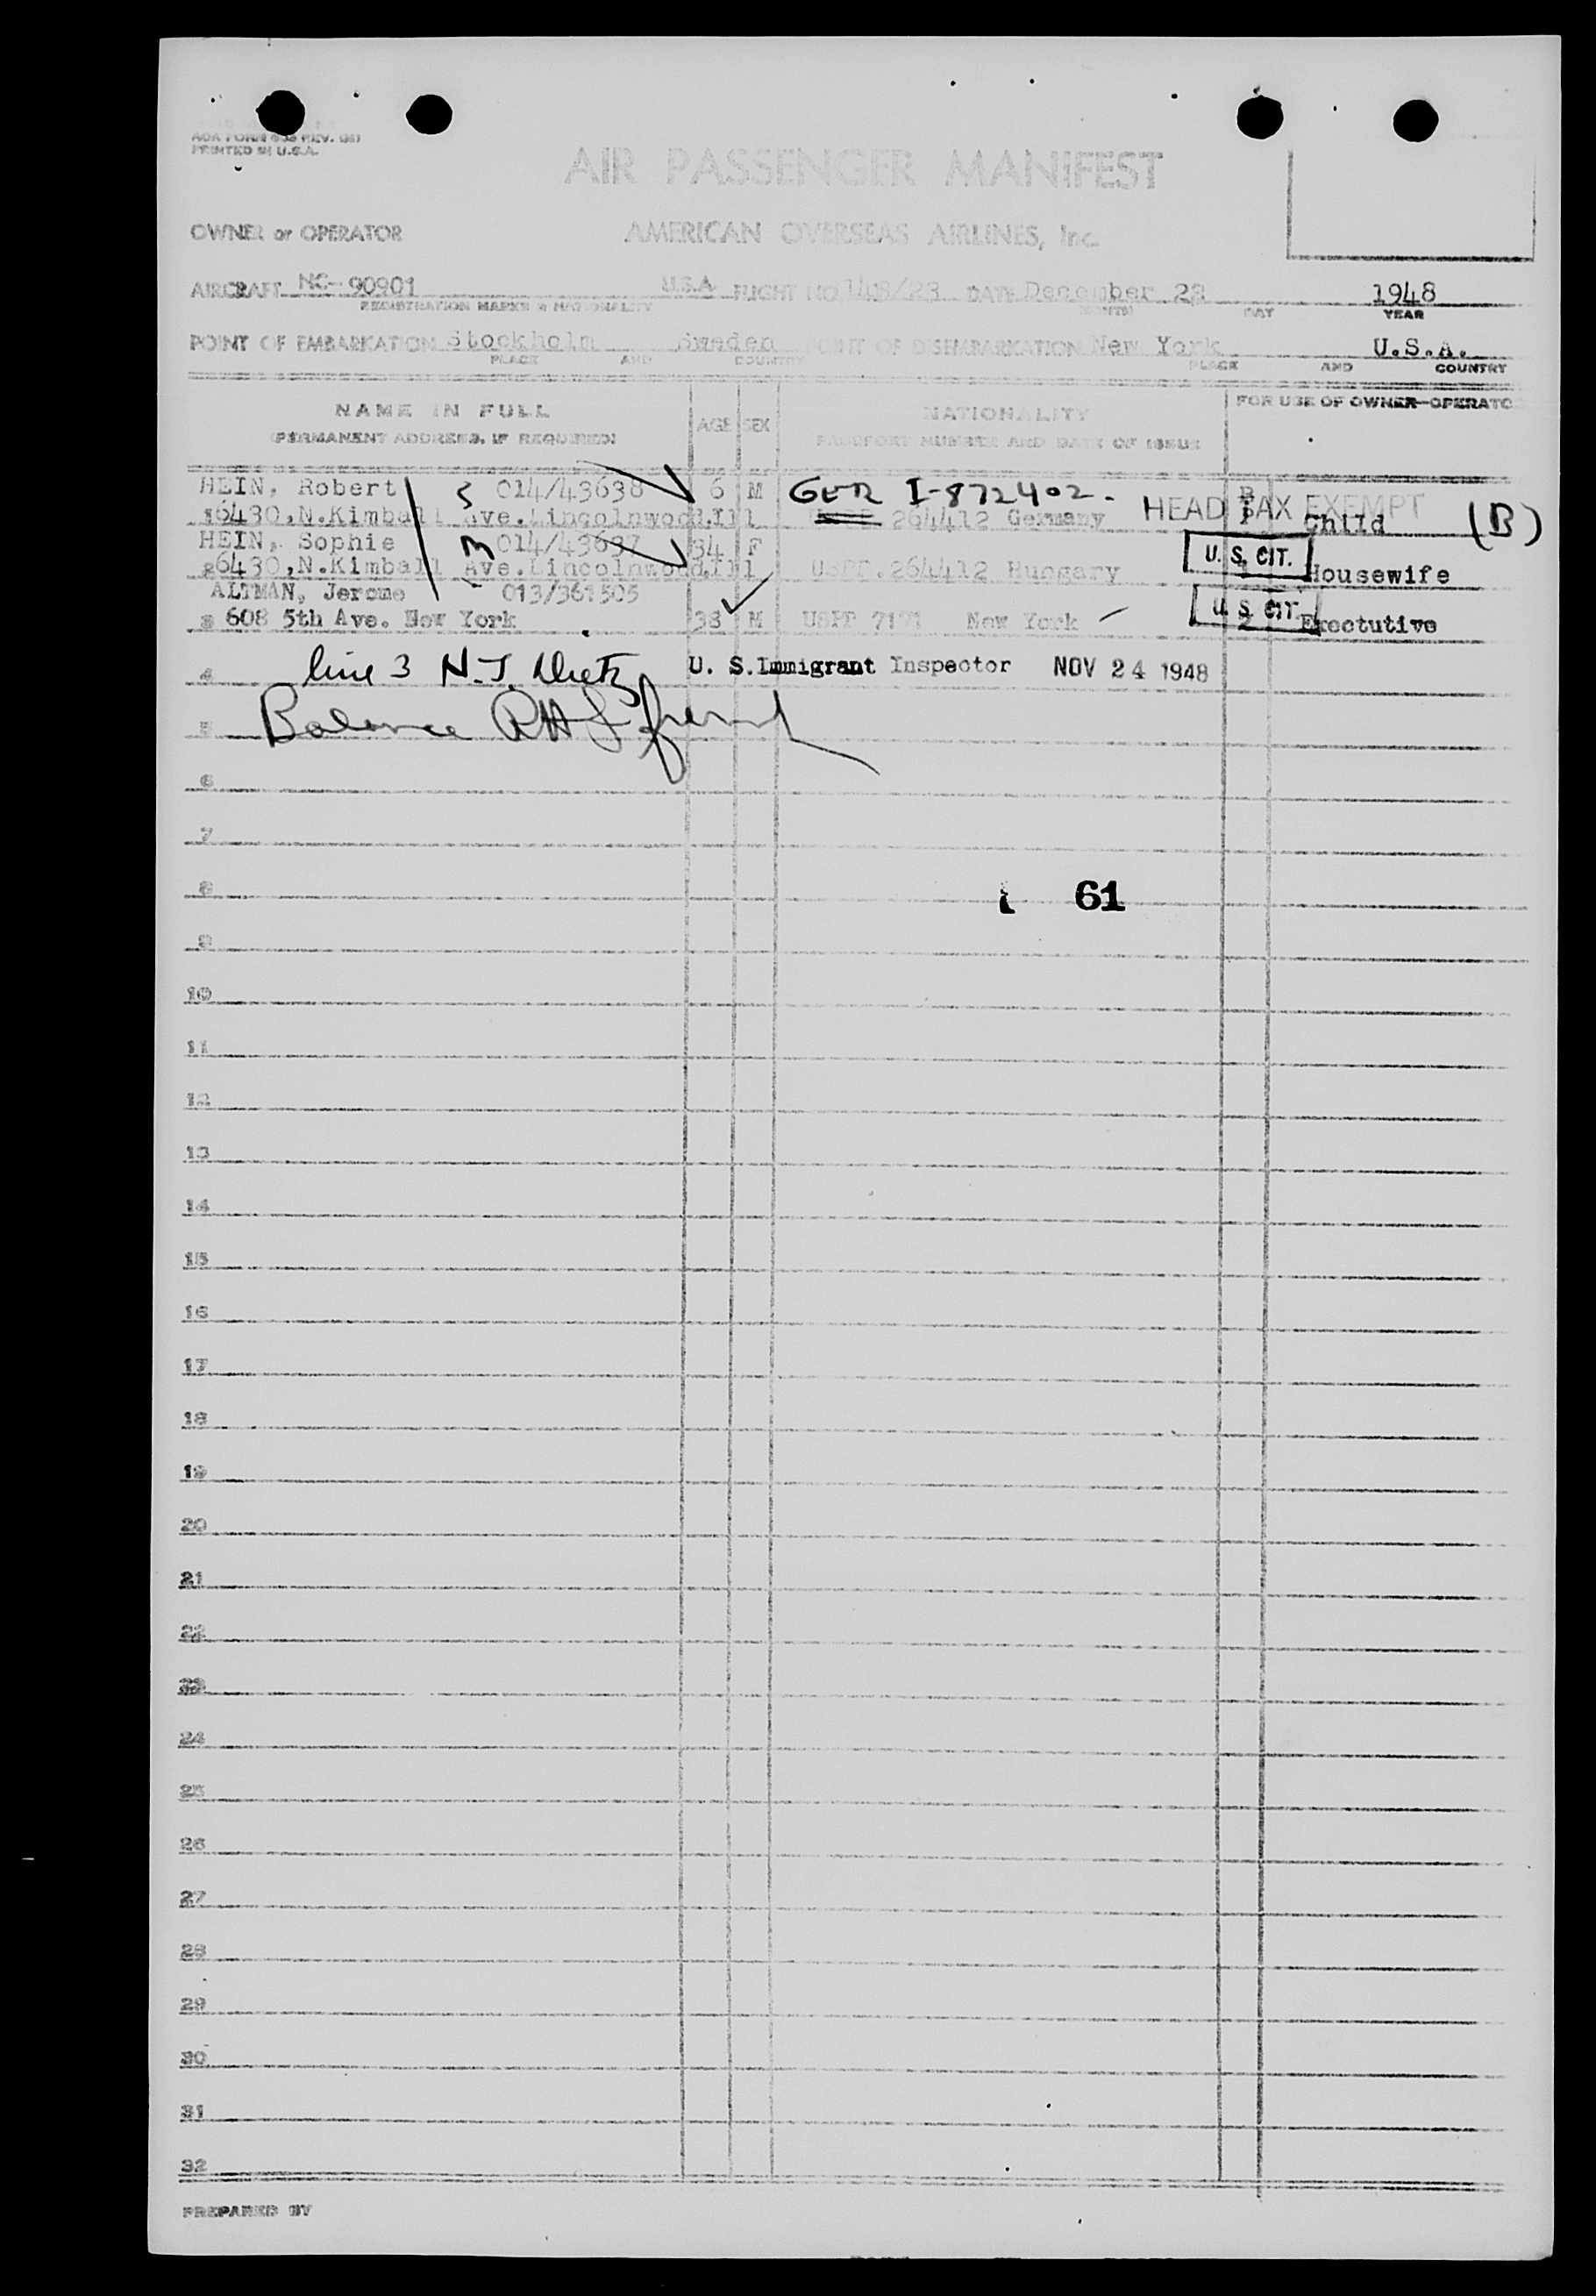 PRINTED IN U.S.A.
AIR PASSENGER MANIFEST
OWNER or OPERATOR AMERICAN OVERSEAS AIRLINES, Inc.
AIRCRAFT NC- 90901 U.S.A FLIGHT NO. DATE December 23 1948
REGISTRATION MARKS & NATIONALITY MONTH DAY YEAR
POINT OF EMBARKATION Stockholm Sweden POINT OF DISEMBARKATION New York U.S.A.
PLACE AND COUNTRY PLACE AND COUNTRY
NAME IN FULL AGE SEX NATIONALITY FOR USE OF OWNER-OPERATO
(PERMANENT ADDRESS, IF REQUIRED) PASSPORT NUMBER AND DATE OF ISSUE
HEIN, Robert 014/43638 6 M GER I-872402. HEAD TAX EXEMPT
6430,N.Kimball Ave.Lincolnwood,Ill 264412 Germany Child (B)
HEIN, Sophie 014/43637 34 F U. S. CIT.
6430,N.Kimball Ave.Lincolnwood,Ill USPP.264412 Hungary Housewife
ALTMAN, Jerome 013/361505 U. S. CIT.
3 608 5th Ave. New York 38 M USPP New York Exectutive
4 line 3 N.J. U. S. Immigrant Inspector NOV 24 1948
5 Balance
6
7
8 61
9
10
11
12
13
14
15
16
17
18
19
20
21
22
23
24
25
26
27
28
29
30
31
32
PREPARED BY